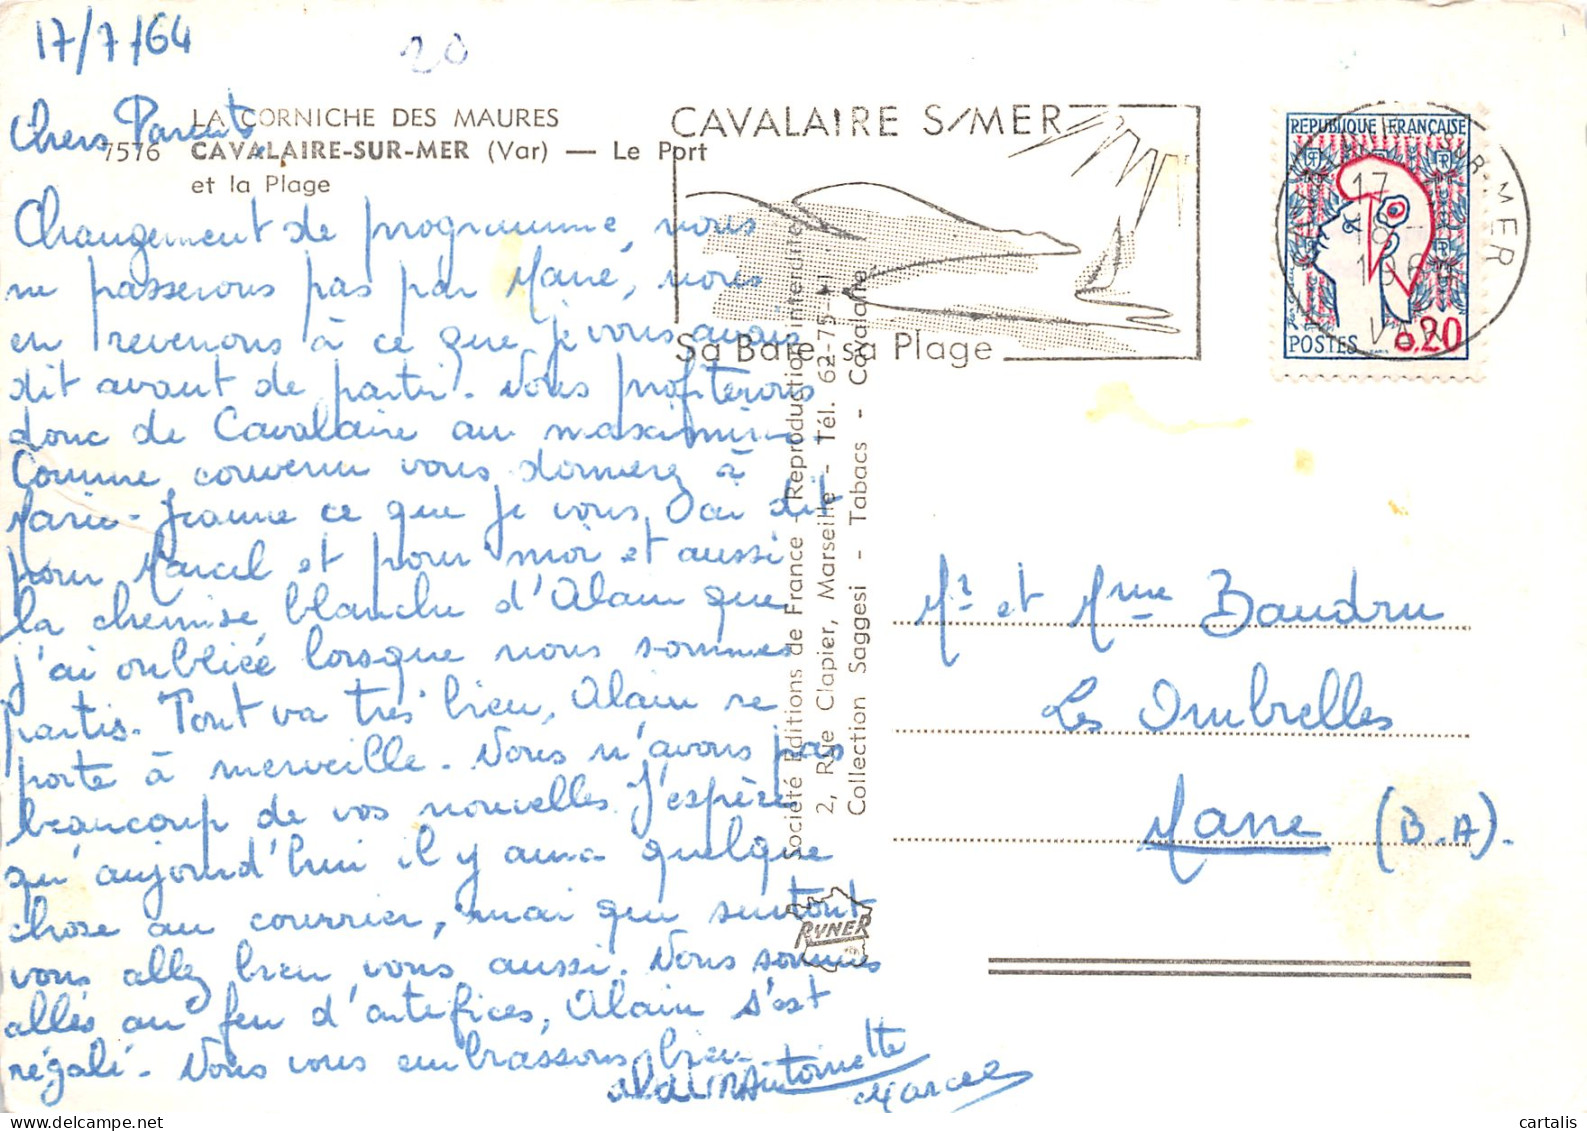 17/7/64
20
LA CORNICHE DES MAURES
7576 CAVALAIRE-SUR-MER (Var) — Le Port
et la Plage
Chers Parents,
Changement de programme, nous
ne passerons pas par Mane, nous
en revenons à ce que je vous avais
dit avant de partir. Nous profiterons
donc de Cavalaire au maximum.
Comme convenu vous donnerez à
Marie-Jeanne ce que je vous ai dit
pour Marcel et pour moi et aussi
la chemise blanche d'Alain que
j'ai oubliée lorsque nous sommes
partis. Tout va très bien, Alain se
porte à merveille. Nous n'avons pas
beaucoup de vos nouvelles. J'espère
qu'aujourd'hui il y aura quelque
chose au courrier, mai que surtout
vous allez bien vous aussi. Nous sommes
allés au feu d'artifices, Alain s'est
régalé. Nous vous embrassons bien
alain Antoinette
Marcel
CAVALAIRE S/MER
Sa Baie, sa Plage
REPUBLIQUE FRANÇAISE
POSTES 0,20
17
18 -
196
SUR-MER
VAR
Société Editions de France - Reproduction interdite
2, Rue Clapier, Marseille - Tél. 62-75-
Collection Saggesi - Tabacs - Cavalaire
RYNER
Mr et Mme Baudru
Les Ombrelles
Mane (B.A).
cartalis